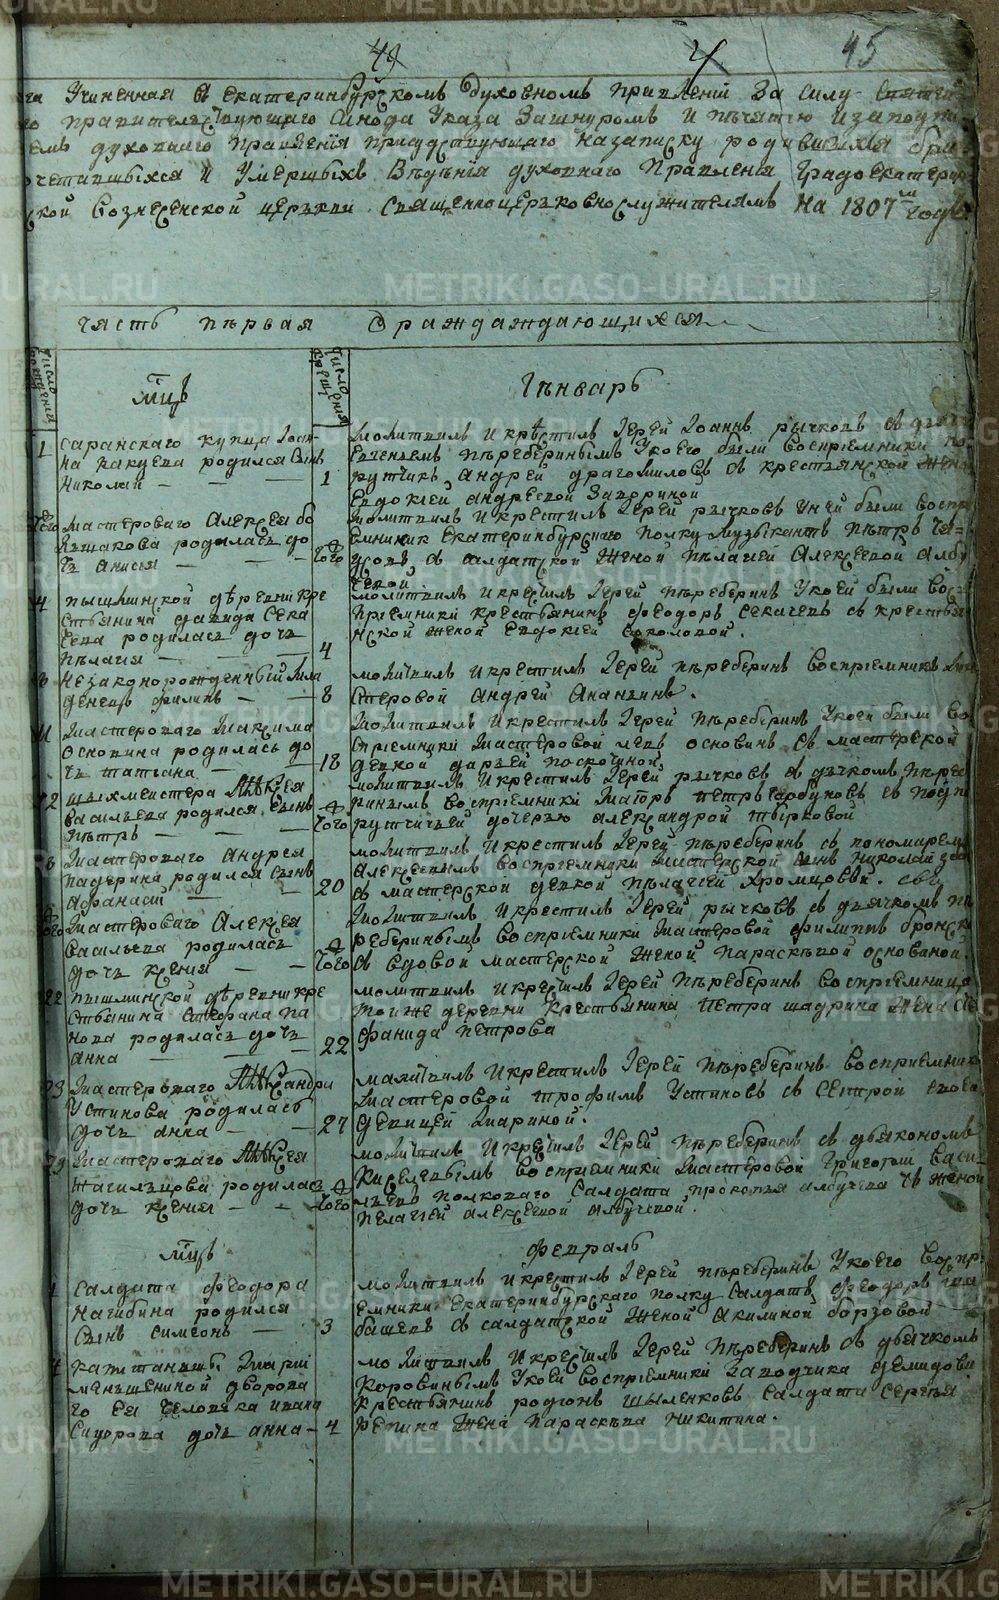 49 4 45
Учиненная въ екатеринбургскомъ духовномъ правленïи За силу
правителствующаго Синода Указа Зашнуромъ и печатью
духовнаго правленïя присудствующаго назаписку родившихся
и Умершыхъ Вѣденïя духовнаго Правленïя Градоекатерин
ской вознесенской церькви священноцерьковнослужителямъ На 1807й годъ
часть първая О раждаждающихся
число рожденïй
мцъ
число крещенïя
Iѣнварь
1 саранскаго купца Iоан
на какуева родился сынъ
николай 1
молитвилъ и крѣстилъ Iерей Iоаннъ рычковъ съ дьяч
Евгеньемъ перебериннымъ Укоего были восприемники по
рутчикъ Андрей драгомиловъ съ крестьянской жен
Евдокией андреевой Заворинои
того
мастероваго Алексея бо
льшакова родилась до
чь анисья того
молитвилъ и крестилъ Iерей рычковъ Уней были воспр
емники екатеринбурскаго полку музыкантъ петръ
усовъ съ салдатской женой пелагией Алексеевой Албу
чевой
4 пышминской деревни кре
стьянина давида сека
чева родилась дочь
пелагия 4
молитвилъ и крестилъ Iерей перебернъ Укоей были вос
приемники крестьянинъ феодоръ секачевъ съ крестья
нской женой Евдокией соколовой.
8 незаконорожденный мла
денецъ филипъ 8
молитвилъ и крестилъ Iерей переберинъ восприемникъ ма
стеровой андрей ананьинъ.
11 мастероваго максима
основина родилась до
чь татьяна 18
молитвилъ и крестилъ Iерей переберинъ Укоей были во
сприемники мастеровой левъ основинъ съ мастерской
девкой дарьей поскочиной,
12 шыхмеистера Алексея
васильева родился сынъ
петръ того
молитвилъ и крестилъ Iерей рычковъ съ дьчкомъ перебе
ринымъ восприемники петръ гарбуновъ съ подпо
рутчичьей дочерью александрой тырковой
мастероваго андрея
падерина родился сынъ
афанасй 20
молитвилъ и крестилъ Iерей переберинъ съ пономаремъ
алексеевымъ восприемники мастерской сынъ николай
съ мастерской девкой пелагией хромцовой.
того мастероваго Алексея
васильева родилась
дочь ксения того
молитвилъ и крестилъ Iерей рычковъ съ дьячкомъ пе
реберинымъ восприемники мастеровой филипъ бронск
съ вдовой мастерской женой параскевой основиной.
22 пышминской деревни кре
стьянина стефана па
нова родилась дочь
анна 22
молитвилъ и крестилъ Iерей переберинъ восприемница
тои же деревни крестьянина петра шадрина жена сте
фанида петрова
23 мастероваго Александра
устинова родилась
дочь анна 27
молитвилъ и крестилъ Iерей переберинъ восприемник
мастеровой трофимъ устиновъ съ сестрой своей
девицей мариной.
мастероваго Алексея
тагильцова родилась
дочь ксения того
молитвилъ и крестилъ Iерей переберинъ съ дьякономъ
киселевымъ восприемники мастеровой григорïй васи
льевъ полковаго салдата прокопья албучева съ женой
пелагией алексеевой албучевой.
мцъ
февраль
1 салдата феодора
нагибина родился
сынъ симеонъ 3
молитвилъ и крестилъ Iерей переберинъ Укоего воспр
емники екатеринбурскаго полку салдатъ феодоръ
башевъ съ салдатской женой акилиной борзовой
4 капитанши марïи
меньшениной дворова
го ея человека ивана
сидорова дочь анна 4
молитвилъ и крестилъ Iерей переберинъ съ дьячкомъ
коровинымъ Укоей восприемники заводчика демидова
крестьянинъ родионъ шыленковъ салдата сергея
репина жена параскева никитина.
METRIKI.GASO-URAL.RU